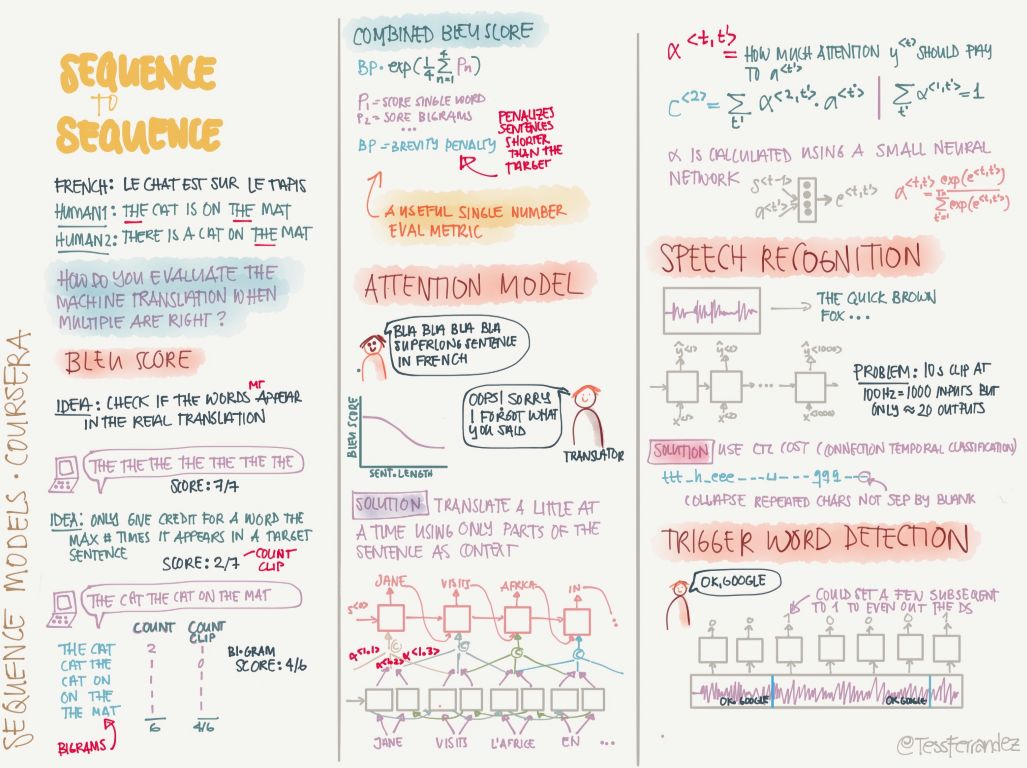 SEQUENCE MODELS · COURSERA
SEQUENCE
TO
SEQUENCE
FRENCH: LE CHAT EST SUR LE TAPIS
HUMAN1: THE CAT IS ON THE MAT
HUMAN2: THERE IS A CAT ON THE MAT
HOW DO YOU EVALUATE THE
MACHINE TRANSLATION WHEN
MULTIPLE ARE RIGHT?
BLEU SCORE
IDEA: CHECK IF THE WORDS MT APPEAR
IN THE REAL TRANSLATION
THE THE THE THE THE THE THE
SCORE: 7/7
IDEA: ONLY GIVE CREDIT FOR A WORD THE
MAX # TIMES IT APPEARS IN A TARGET
SENTENCE
SCORE: 2/7
COUNT
CLIP
THE CAT THE CAT ON THE MAT
COUNT COUNT
CLIP
THE CAT 2 1
CAT THE 1 0
CAT ON 1 1
ON THE 1 1
THE MAT 1 1
6 4/6
BI-GRAM
SCORE: 4/6
BIGRAMS
COMBINED BLEU SCORE
BP · exp(1/4 4∑n=1 Pn)
P1 = SCORE SINGLE WORD
P2 = SORE BIGRAMS
...
BP = BREVITY PENALTY
PENALIZES
SENTENCES
SHORTER
THAN THE
TARGET
A USEFUL SINGLE NUMBER
EVAL METRIC
ATTENTION MODEL
BLA BLA BLA BLA
SUPERLONG SENTENCE
IN FRENCH
OOPS! SORRY
I FORGOT WHAT
YOU SAID
TRANSLATOR
BLEU SCORE
SENT. LENGTH
SOLUTION TRANSLATE A LITTLE AT
A TIME USING ONLY PARTS OF THE
SENTENCE AS CONTEXT
JANE VISITS AFRICA IN
s<0>
C C C C
α<1,1> α<1,2> α<1,3>
JANE VISITS L'AFRICE EN ...
α<t,t'> = HOW MUCH ATTENTION y<t> SHOULD PAY
TO a<t'>
C<2> = ∑t' α<2,t'> · a<t'> | ∑t' α<1,t'> = 1
α IS CALCULATED USING A SMALL NEURAL
NETWORK
s<t-1>
a<t'>
e<t,t'>
α<t,t'> = exp(e<t,t'>) / Tx∑t'=1 exp(e<t,t'>)
SPEECH RECOGNITION
THE QUICK BROWN
FOX ...
ŷ<1> ŷ<2> ŷ<1000>
...
x<1> x<2> x<1000>
PROBLEM: 10s CLIP AT
100Hz = 1000 INPUTS BUT
ONLY ≈ 20 OUTPUTS
SOLUTION USE CTC COST (CONNECTION TEMPORAL CLASSIFICATION)
ttt_h_eee---⊔---qqq--
COLLAPSE REPEATED CHARS NOT SEP BY BLANK
TRIGGER WORD DETECTION
OK, GOOGLE
COULD SET A FEW SUBSEQUENT
TO 1 TO EVEN OUT THE DS
0 0 1 0 0 0 1
OK GOOGLE OK GOOGLE
@TessFerrandez